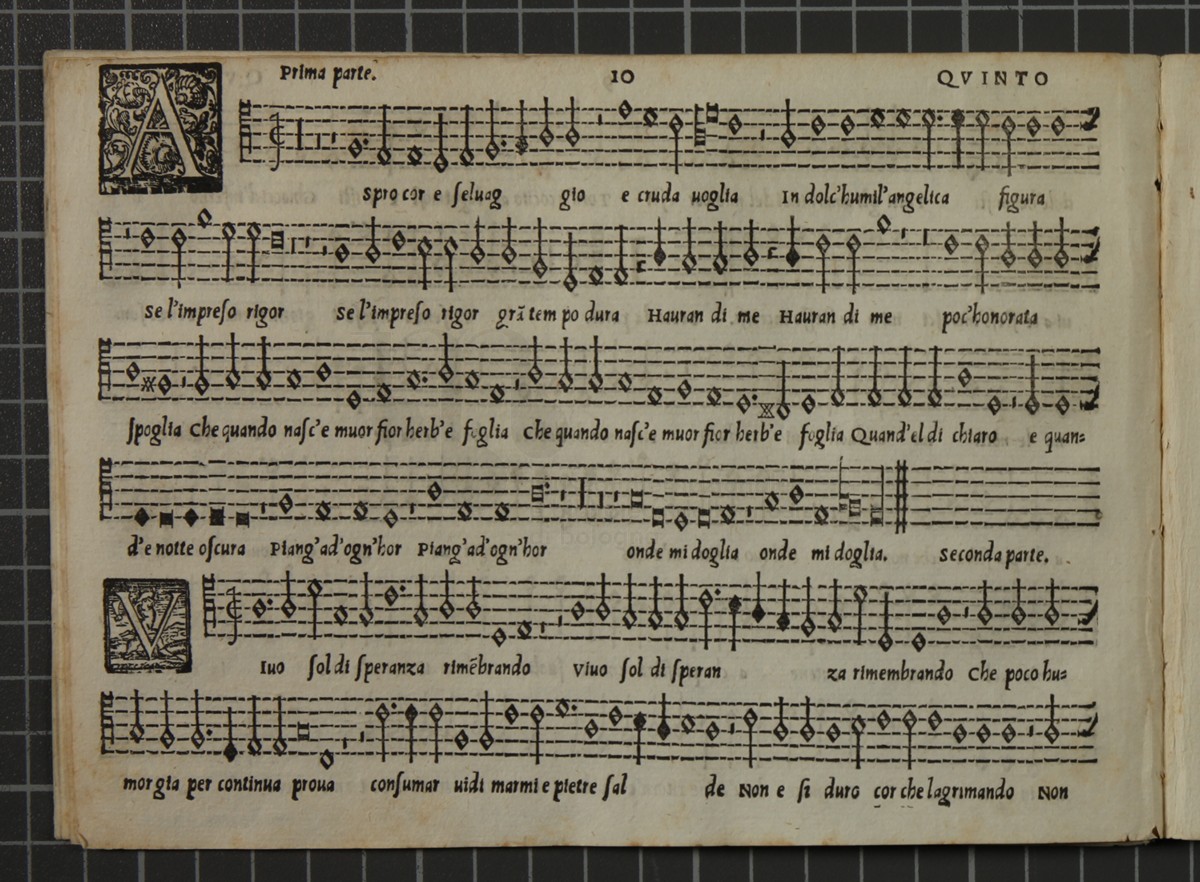 Prima parte. 10 QVINTO
A
spro cor e ſeluag gio e cruda uoglia In dolc'humil'angelica figura
Se l'impreſo rigor Se l'impreſo rigor grã tem po dura Hauran di me Hauran di me poc'honorata
ſpoglia Che quando naſc'e muor fior herb'e foglia Che quando naſc'e muor fior herb'e foglia Quand'el di chiaro e quan=
d'e notte oſcura Piang'ad'ogn'hor Piang'ad'ogn'hor onde mi doglia onde mi doglia. Seconda parte.
V
Iuo ſol di ſperanza rimẽbrando Viuo ſol di ſperan za rimembrando Che poco hu=
mor gia per continua proua conſumar uidi marmi e pietre ſal de Non e ſi duro cor che lagrimando Non